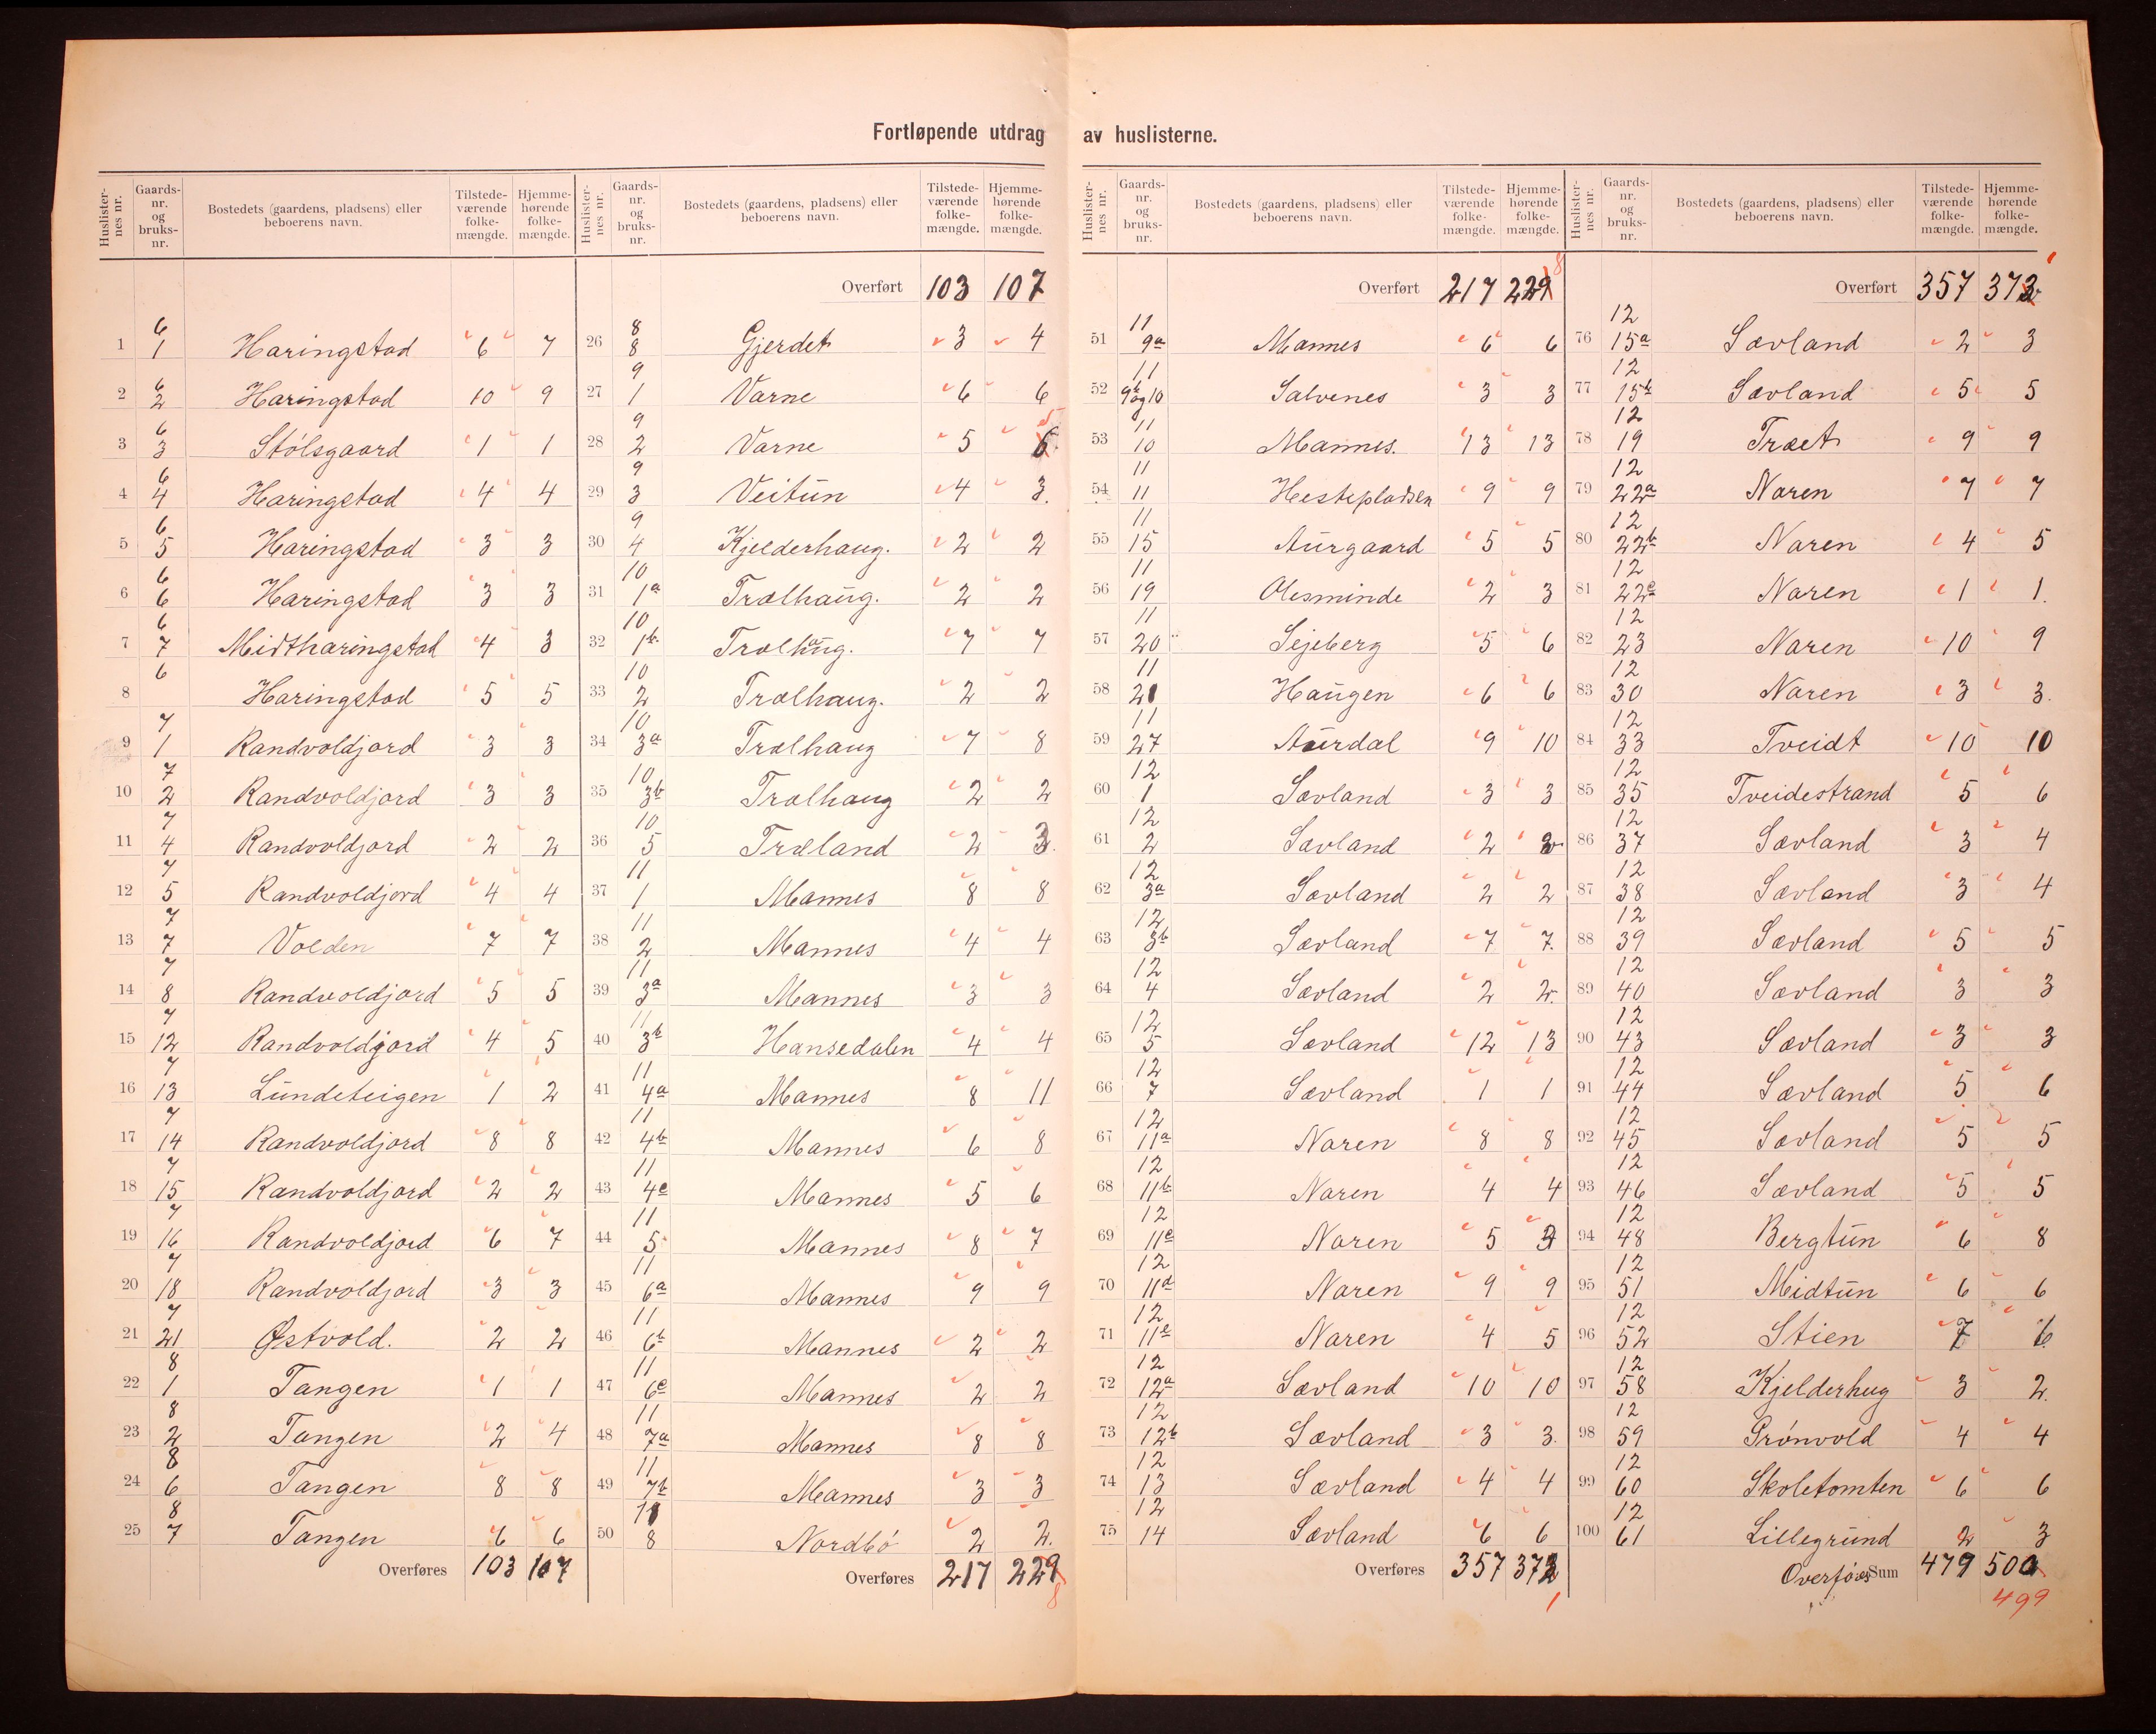 Fortløpende utdrag av huslisterne.
Huslister-nes nr. Gaards-nr. og bruks-nr. Bostedets (gaardens, pladsens) eller beboerens navn. Tilstede-værende folke-mængde. Hjemme-hørende folke-mængde.
1 6/1 Haringstad 6 7
2 6/2 Haringstad 10 9
3 6/3 Stólsgaard 1 1
4 6/4 Haringstad 4 4
5 6/5 Haringstad 3 3
6 6/6 Haringstad 3 3
7 6/7 Midtharingstad 4 3
8 6 Haringstad 5 5
9 7/1 Randvoldjord 3 3
10 7/2 Randvoldjord 3 3
11 7/4 Randvoldjord 2 2
12 7/5 Randvoldjord 4 4
13 7/7 Volden 7 7
14 7/8 Randvoldjord 5 5
15 7/12 Randvoldjord 4 5
16 7/13 Lundeteigen 1 2
17 7/14 Randvoldjord 8 8
18 7/15 Randvoldjord 2 2
19 7/16 Randvoldjord 6 7
20 7/18 Randvoldjord 3 3
21 7/21 Østvold. 2 2
22 8/1 Tangen 1 1
23 8/2 Tangen 2 4
24 8/6 Tangen 8 8
25 8/7 Tangen 6 6
Overføres 103 107
Huslister-nes nr. Gaards-nr. og bruks-nr. Bostedets (gaardens, pladsens) eller beboerens navn. Tilstede-værende folke-mængde. Hjemme-hørende folke-mængde.
Overført 103 107
26 8/8 Gjerdet 3 4
27 9/1 Varne 6 6
28 9/2 Varne 5 6 5
29 9/3 Veitun 4 3.
30 9/4 Kjelderhaug. 2 2
31 10/1a Trælhaug. 2 2
32 10/1b Trælhaug. 7 7
33 10/2 Trælhaug. 2 2
34 10/3a Trælhaug 7 8
35 10/3b Trælhaug 2 2
36 10/5 Træland 2 3.
37 11/1 Mannes 8 8
38 11/2 Mannes 4 4
39 11/3a Mannes 3 3
40 11/3b Hansedalen 4 4
41 11/4a Mannes 8 11
42 11/4b Mannes 6 8
43 11/4c Mannes 5 6
44 11/5 Mannes 8 7
45 11/6a Mannes 9 9
46 11/6b Mannes 2 2
47 11/6c Mannes 2 2
48 11/7a Mannes 8 8
49 11/7b Mannes 3 3
50 11/8 Nordbó 2 2.
Overføres 217 229 8
Huslister-nes nr. Gaards-nr. og bruks-nr. Bostedets (gaardens, pladsens) eller beboerens navn. Tilstede-værende folke-mængde. Hjemme-hørende folke-mængde.
Overført 217 229 8
51 11/9a Mannes 6 6
52 11/9b og 10 Salvenes 3 3
53 11/10 Mannes. 13 13
54 11/11 Hestepladsen 9 9
55 11/15 Aurgaard 5 5
56 11/19 Olesminde 2 3
57 11/20 Sejeberg 5 6
58 11/21 Haugen 6 6
59 11/27 Aurdal 9 10
60 12/1 Sævland 3 3
61 12/2 Sævland 2 2
62 12/3a Sævland 2 2
63 12/3b Sævland 7 7.
64 12/4 Sævland 2 2
65 12/5 Sævland 12 13
66 12/7 Sævland 1 1
67 12/11a Naren 8 8
68 12/11b Naren 4 4
69 12/11c Naren 5
70 12/11d Naren 9 9
71 12/11e Naren 4 5
72 12/12a Sævland 10 10
73 12/12b Sævland 3 3.
74 12/13 Sævland 4 4
75 12/14 Sævland 6 6
Overføres 357 372 1
Huslister-nes nr. Gaards-nr. og bruks-nr. Bostedets (gaardens, pladsens) eller beboerens navn. Tilstede-værende folke-mængde. Hjemme-hørende folke-mængde.
Overført 357 372 1
76 12/15a Sævland 2 3
77 12/15b Sævland 5 5
78 12/19 Træet 9 9
79 12/22a Naren 7 7
80 12/22b Naren 4 5
81 12/22c Naren 1 1.
82 12/23 Naren 10 9
83 12/30 Naren 3 3.
84 12/33 Tveidt 10 10
85 12/35 Tveidestrand 5 6
86 12/37 Sævland 3 4
87 12/38 Sævland 3 4
88 12/39 Sævland 5 5
89 12/40 Sævland 3 3
90 12/43 Sævland 3 3
91 12/44 Sævland 5 6
92 12/45 Sævland 5 5
93 12/46 Sævland 5 5
94 12/48 Bergtun 6 8
95 12/51 Midtun 6 6
96 12/52 Stien 7 6
97 12/58 Kjelderhug 3 2.
98 12/59 Grónvold 4 4
99 12/60 Skoletomten 6 6
100 12/61 Lillegrund 2 3
Overføres Sum 479 500
499